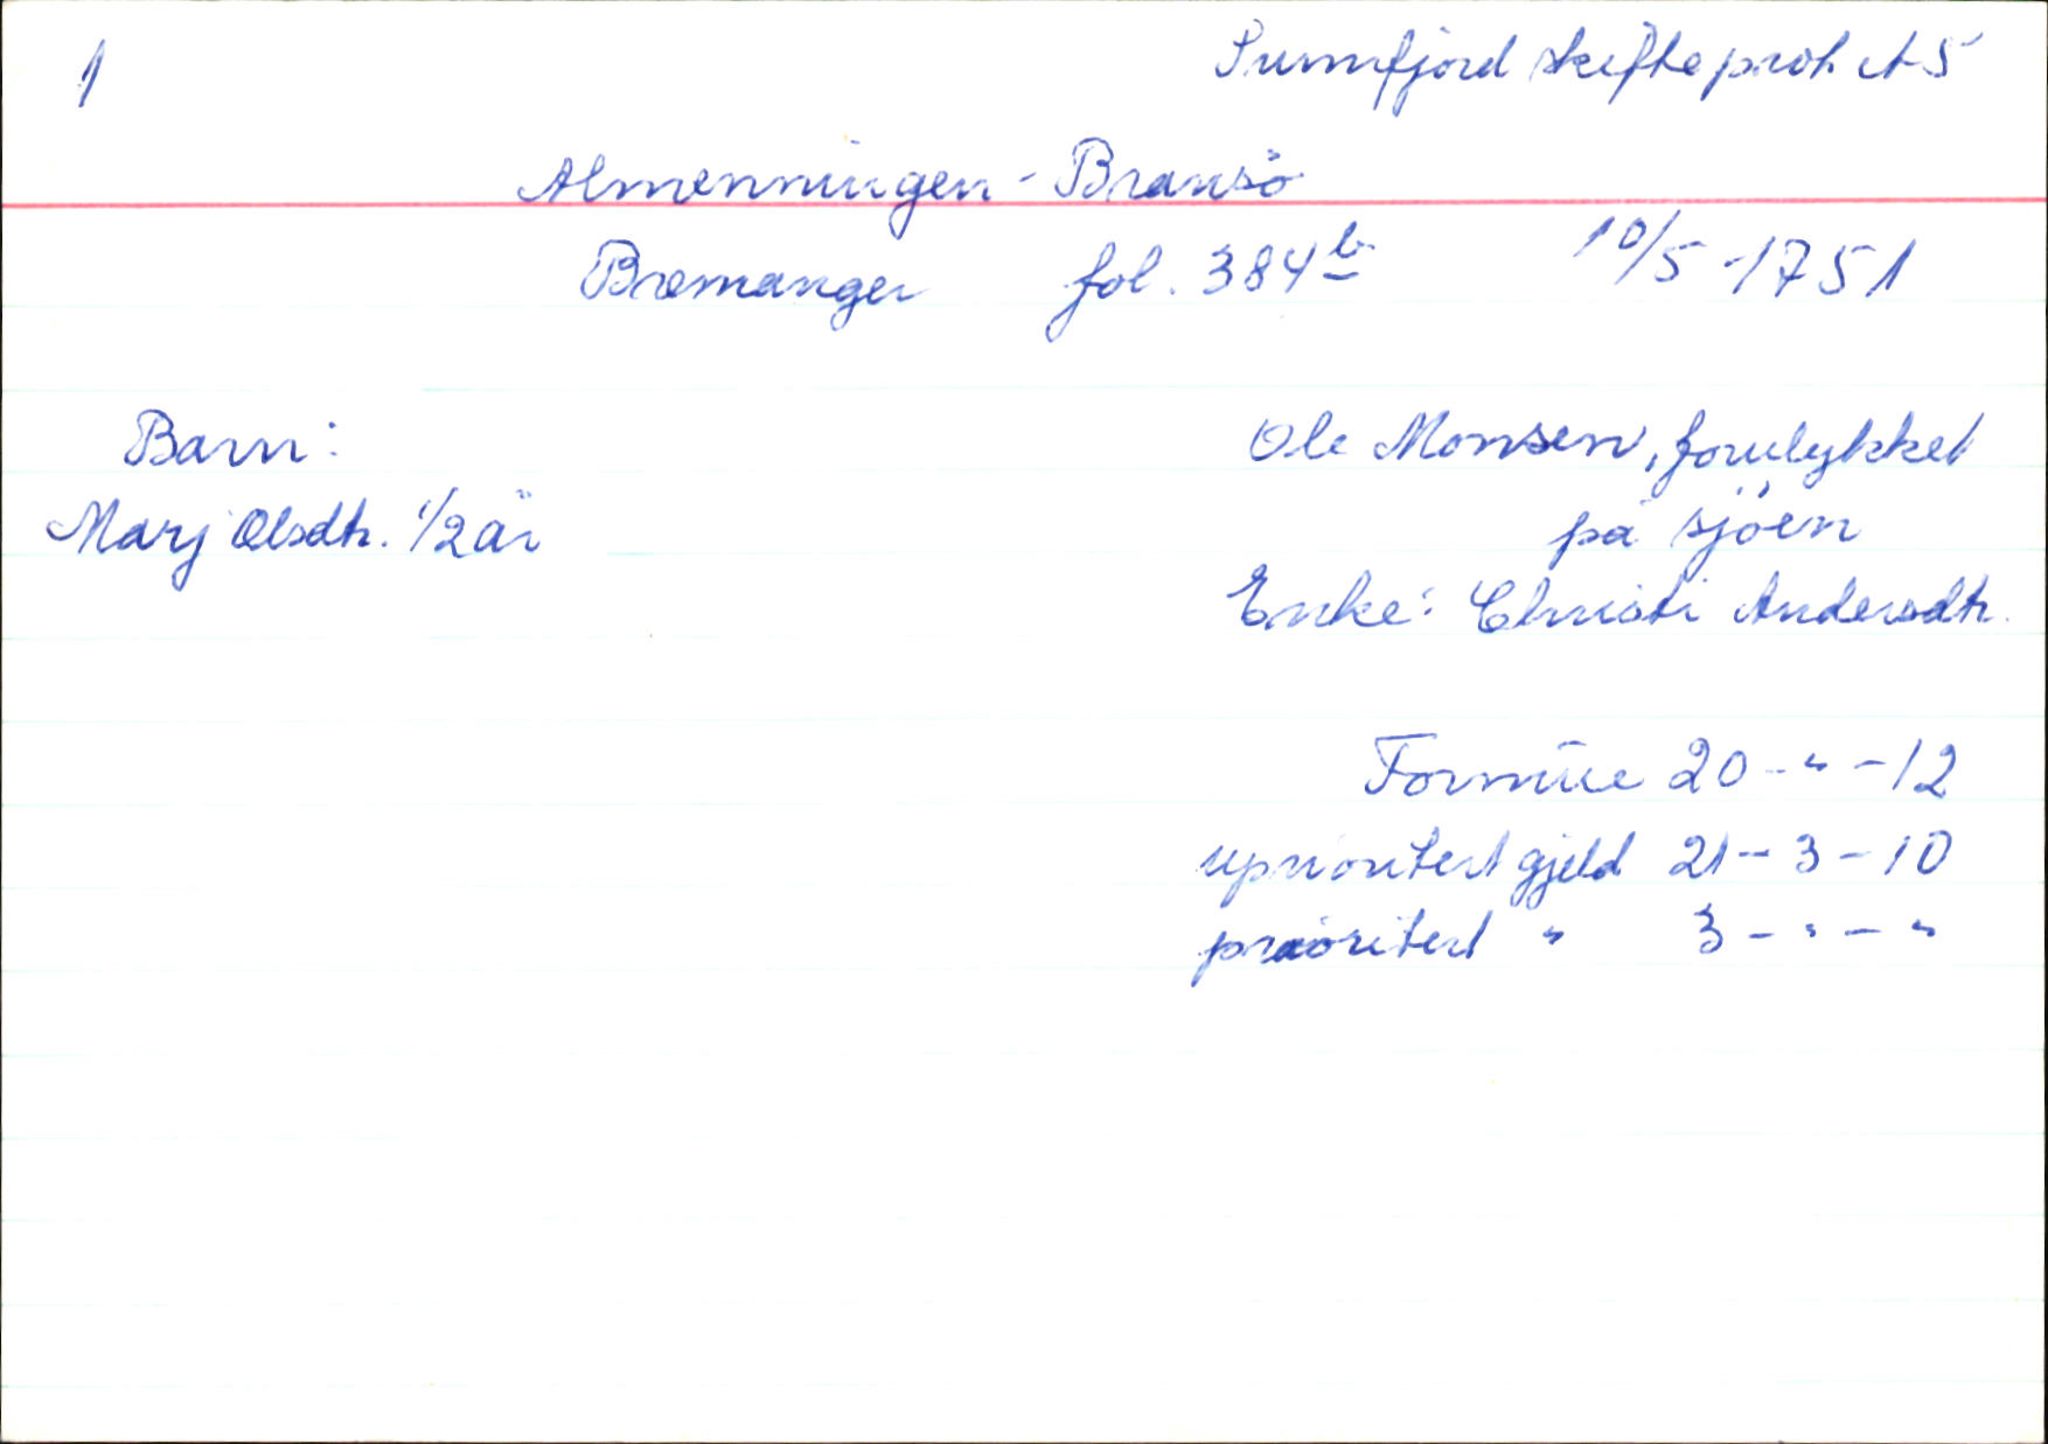 1
Sunnfjord skifteprot A 5
Almenningen - Bransö
Bremanger fol. 384 b 10/5 - 1751
Barn:
Marj Olsdtr. 1/2 år
Ole Monsen, forulykket
på sjöen
Enke: Christi Andersdtr.
Formue 20 - " - 12
uprioritert gjeld 21 - 3 - 10
prioritert " 3 - " - "